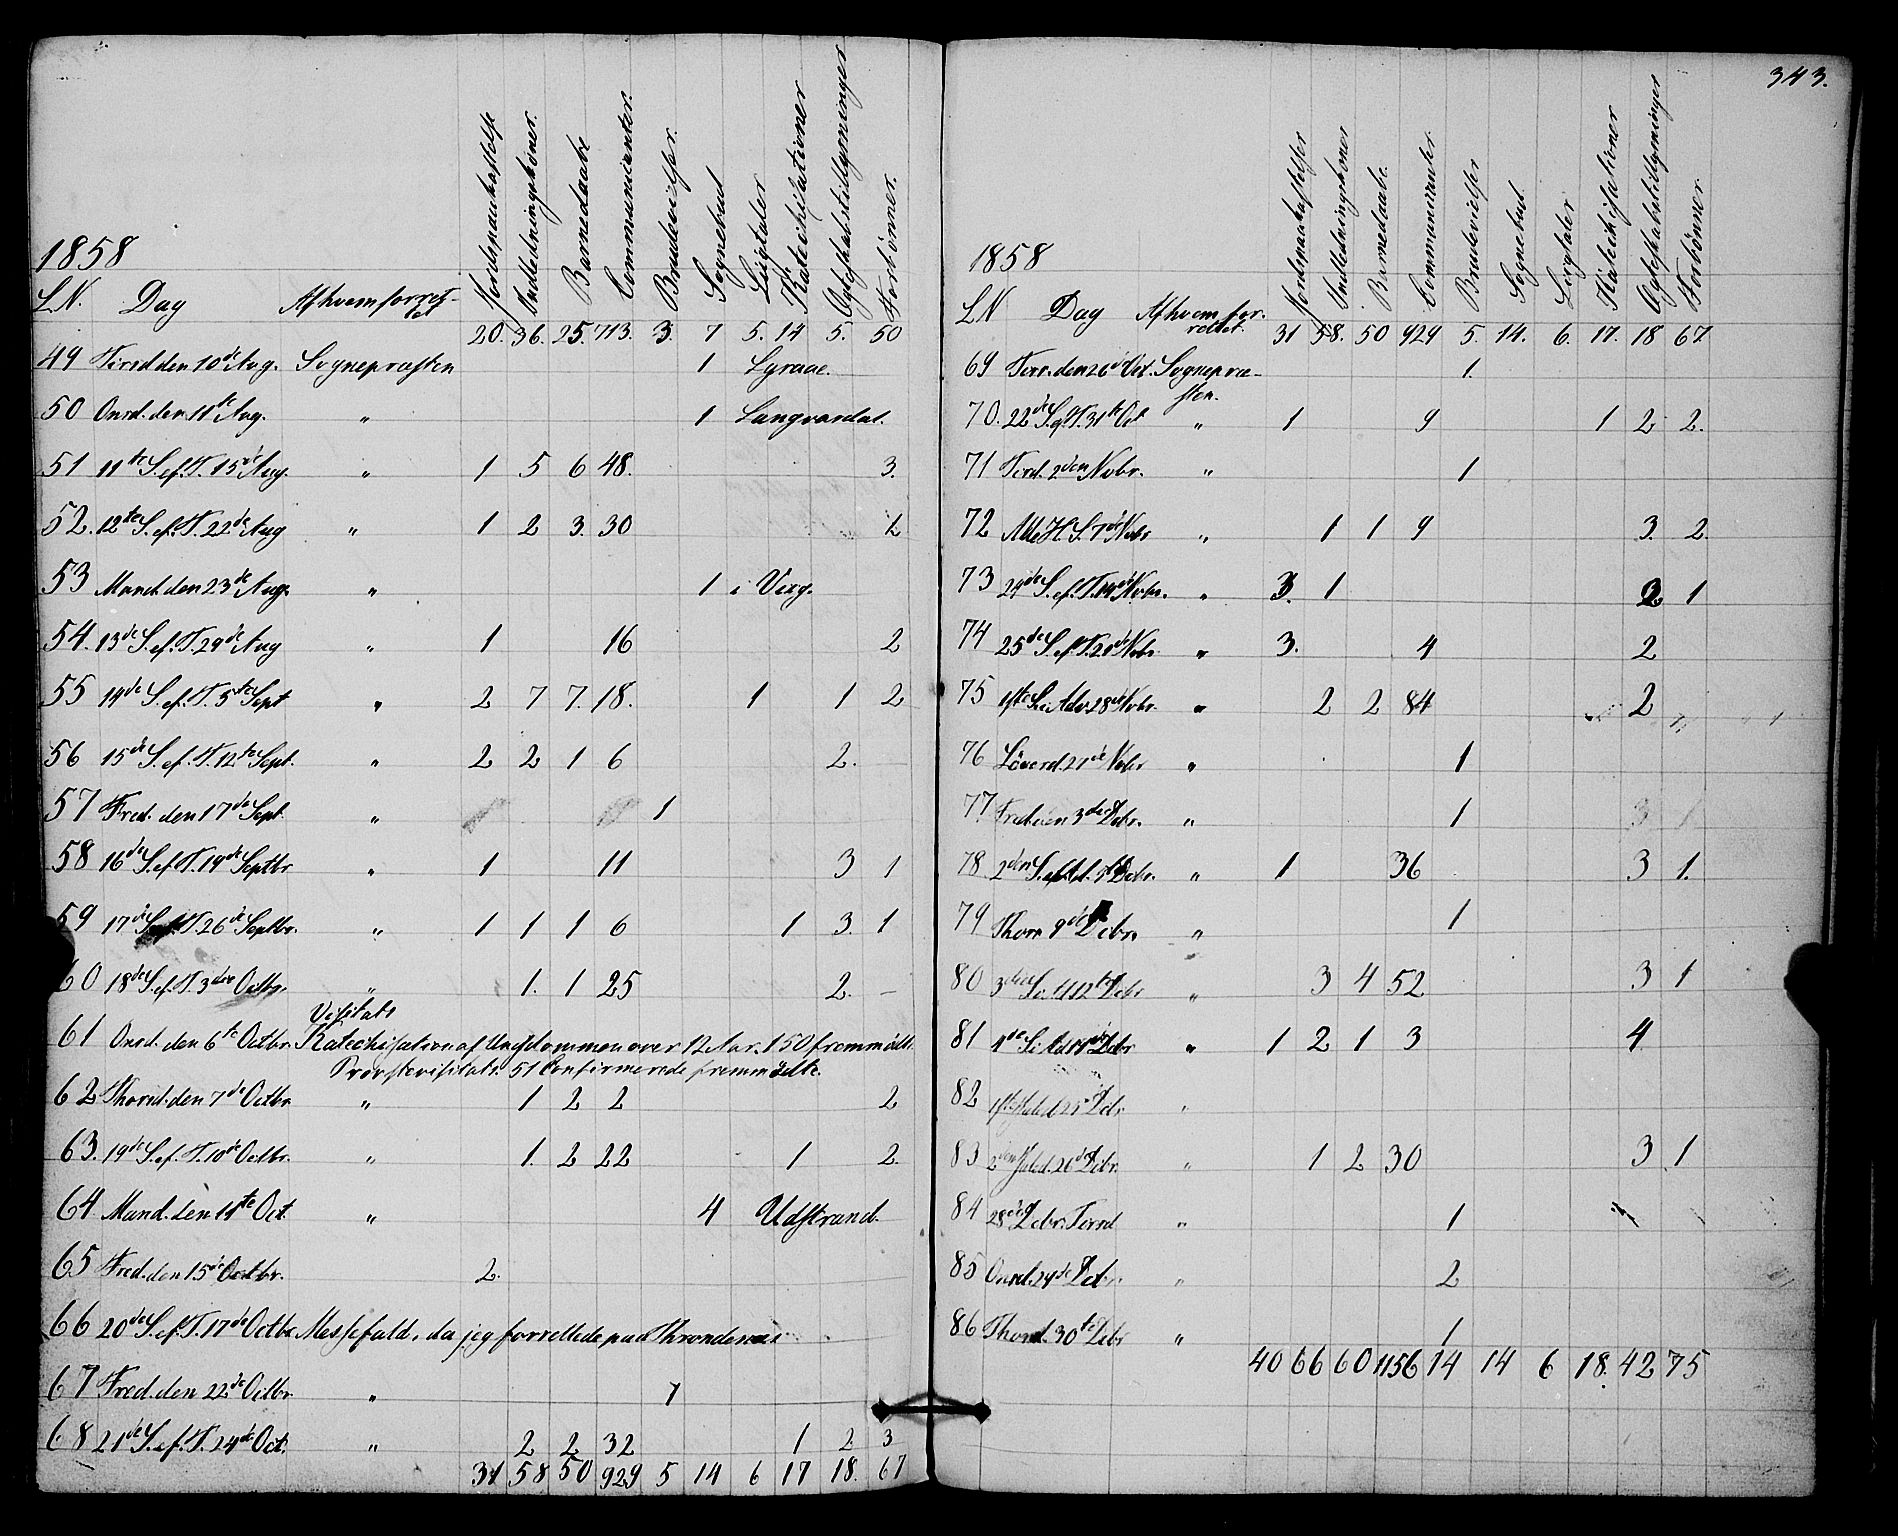 343.
1858
L.N. Dag Af hvem forrettet Jordspaakastelse Indledningskoner. Barnedaabe Communicanter. Brudevielser. Sognebud Ligtaler Katechisationer Ægteskabstillysninger Forbönner.
20. 36. 25. 713. 3. 7 5. 14 5. 50
49 Tirsd den 10de Aug. Sognepræsten 1
50 Onsd. den 11te Aug. " 1 Langvardal.
51 11te S. ef. T. 15de Aug. " 1 5 6 48. 3.
52. 12te S. ef. T. 22de Aug " 1 2 3. 30
53 Mand. den 23de Aug. " 1 i
54. 13de S. ef. T. 29de Aug " 1 16 2
55 14de S. ef. T. 5te Sept " 2 7 7. 18. 1 1 2
56 15de S. ef. T. 12te Sept. " 2 2 1 6 2. -
57 Fred. den 17de Sept. " 1
58 16de S. ef. T. 19de Septbr " 1 11 3 1
59 17de S. ef. T. 26de Septbr. " 1 1 1 6 1 3 1
60 18de S. ef. T. 3die Octbr. " 1. 1 25 2. -
Visitats
61 Onsd. den 6te Octbr. Katechisation af Ungdommen over 12 Aar. 150 fremmödte.
Provstevisitats. 51 Confirmerede fremmödte.
62 Thorsd. den 7de Octbr. " 1 2 2 2
63. 19de S. ef. T. 10de Octbr. " 1. 2 22 1 2.
64 Mand. den 11te Oct. " 4 Udstrand.
65 Fred. den 15de Octbr. 2.
66 20de S. ef. T. 17de Octbr. Messefald, da jeg forrettede paa Throndenæs
67 Fred. den 22de Octbr. " 1
68 21de S. ef. T. 24de Oct. " 2 2 32 1 2 3
31 58 50 929 5 14 6 17 18. 67
1858
LN Dag Af hvem forrettet. Jordspaakastelser Indledningskoner Barnedaabe. Communicanter Brudevielser Sognebud. Ligtaler Katechisationer Ægteskabstillysninger Forbönner.
31 58. 50 929 5. 14. 6. 17. 18 67
69 Tirs. den 26de Oct. Sognepræsten. 1.
70. 22de S. ef. T. 31te Oct " 1 9 1 2 2.
71 Tirsd. 2den Nvbr. " 1
72 Alle H. S. 7de Nvbr " 1 1 9 3. 2.
73 24de S. ef. T. 14de Nvbr. " 3. 1 1
74 25de S. ef. T. 21de Nvbr " 3. 4 2
75 1ste S. i Adv. 28de Nvbr. " 2 2 84 2
76 Löverd. 27de Nvbr " 1
77. Fred. den 3die Debr. " 1 3 1
78. 2den S. Debr. " 1 36 3 1.
79 Thors. 9de Debr. " 1
80 3die S. i Ad 12te Debr " 3 4 52 3 1
81 4de S. i Ad 19de Debr " 1 2 1 3 4.
82 1ste Juled. 25de Debr "
83 2den Juled. 26de Debr. " 1 2 30 3 1
84 28de Debr. Tirsd " 1
85 Onsd. 29de Debr. " 2
86 Thorsd. 30te Debr " 1
40 66 60 1156 14 14 6 18. 42 75